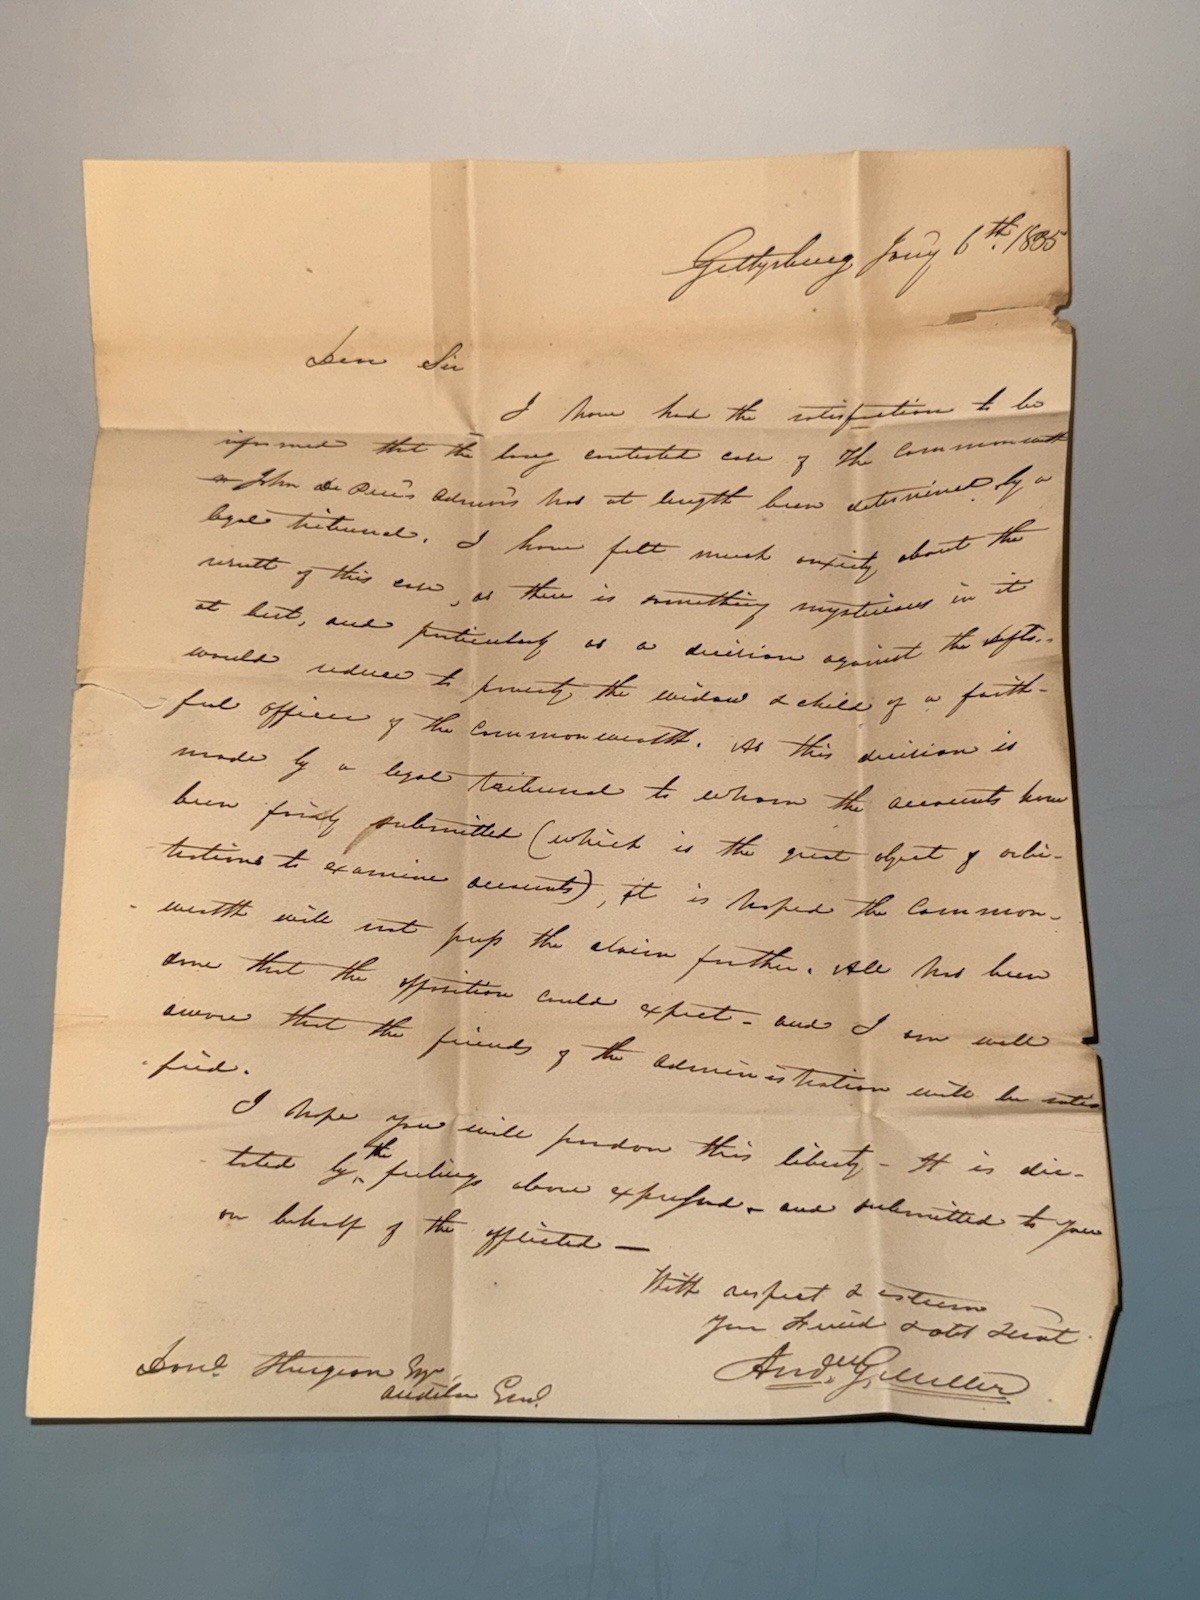 Gettysburg Jany 6th. 1835
Dear Sir
I have had the satisfaction to be
informed that the long contested case of The Commonwealth
vs John De Pui's Admors has at length been determined by a
legal tribunal. I have felt much anxiety about the
result of this case, as there is something mysterious in it
at best, and particularly as a decision against the Defts..
would reduce to poverty the widow & child of a faith-
ful officer of the Commonwealth. As this decision is
made by a legal tribunal to whom the accounts have
been fairly submitted (which is the great object of arbi-
trations to examine accounts), it is hoped the Common-
wealth will not press the claim further. All has been
done that the opposition could expect - and I am well
aware that the friends of the administration will be satis
fied.
I hope you will pardon this liberty - It is dic-
tated by the feelings above expressed - and submitted to you
on behalf of the afflicted —
With respect & esteem
your friend & obt Servt
Andw. G. Miller
Danl. Sturgeon Esqr,
Auditor Genl.